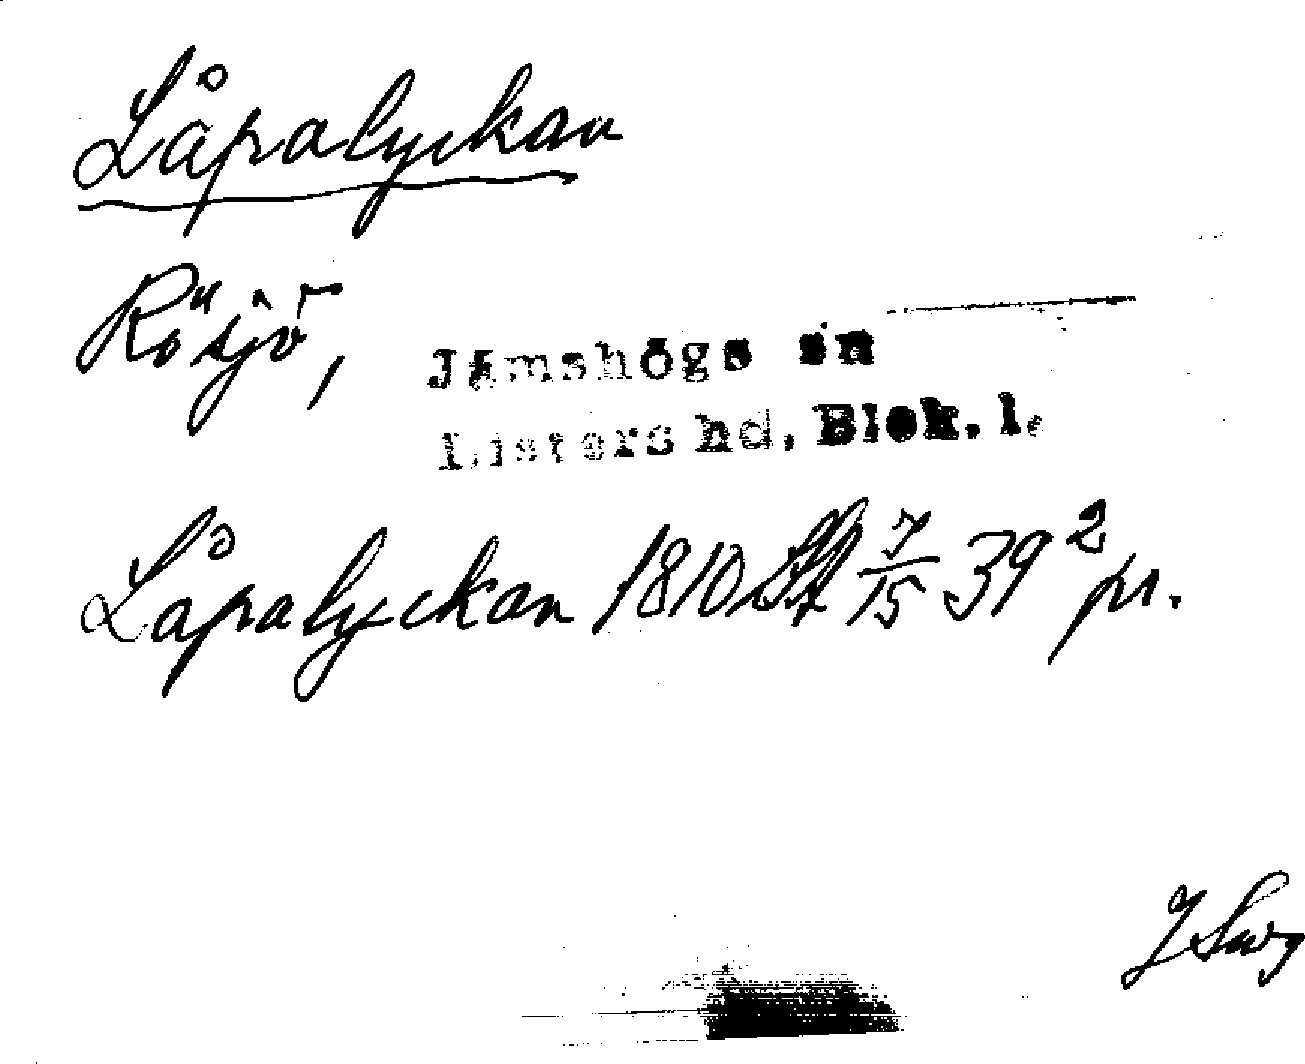 Låpalyckan
Rösjö,
Jämshögs sn
Listers hd. Blek. l.
Låpalyckan 1810 7/15 39² pr.